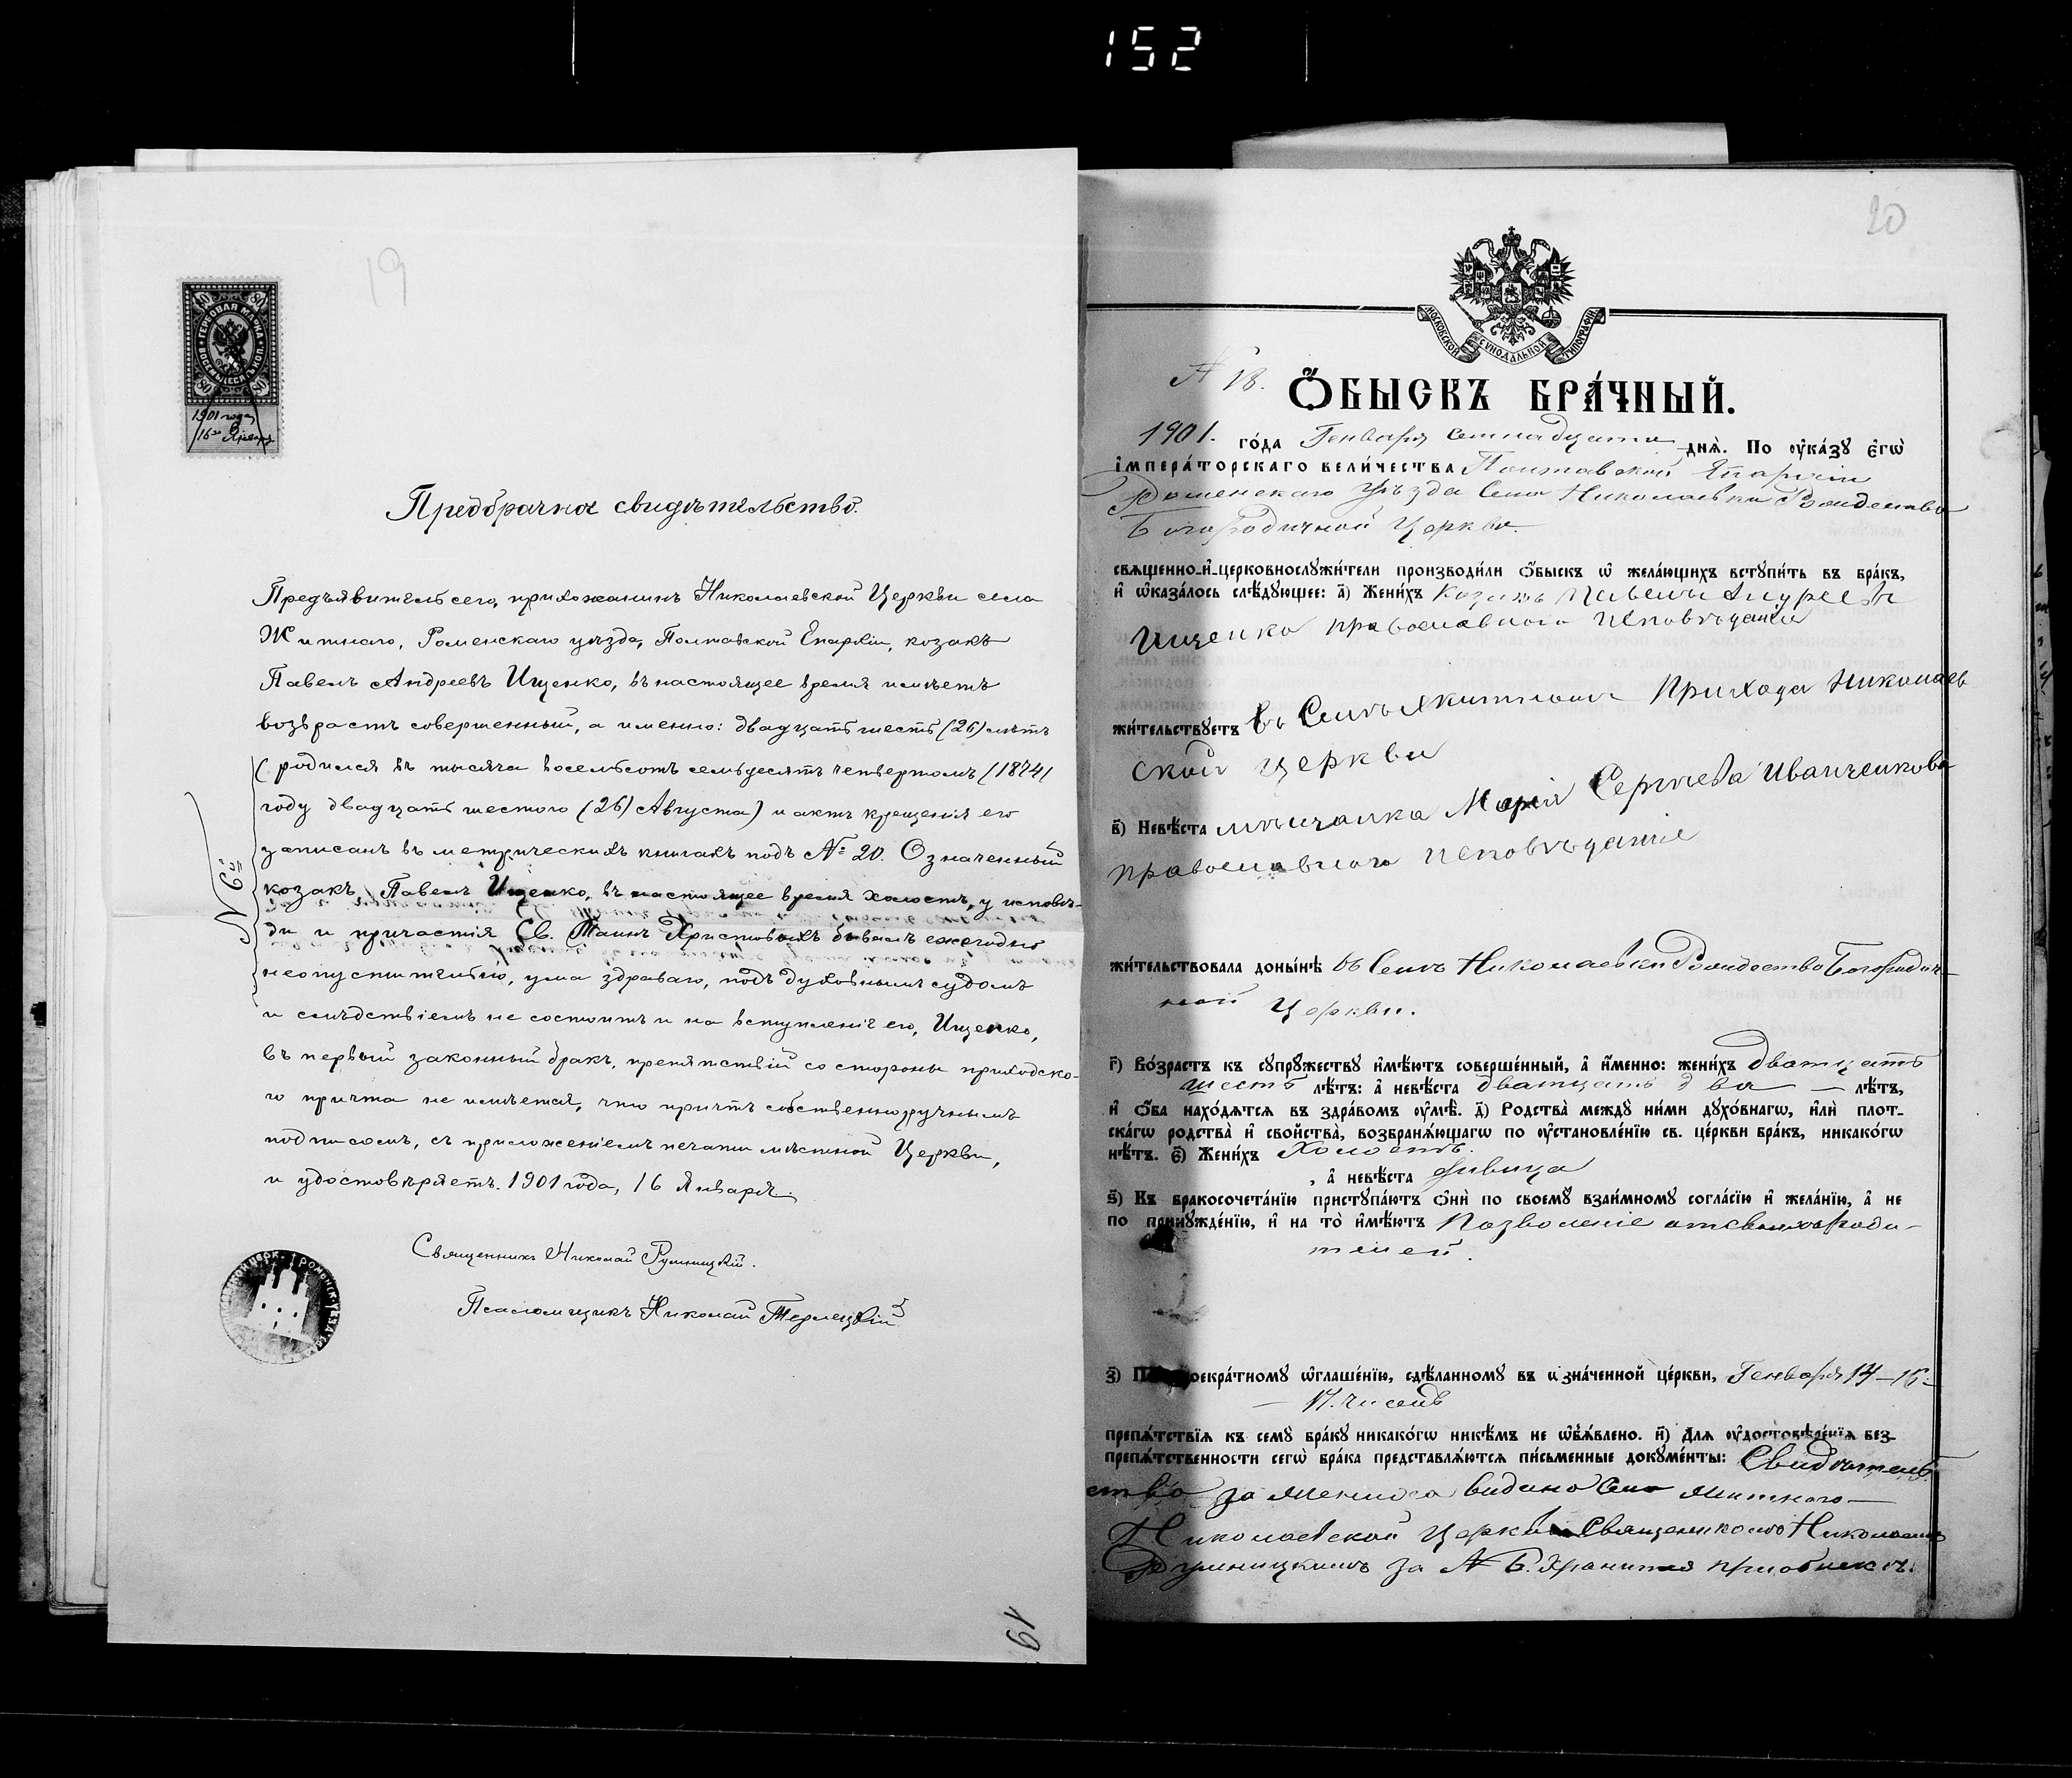 152
19
80 80
ГЕРБОВАЯ МАРКА
ВОСЕМЬДЕСЯТЪ КОП.
80 80
1901 года
16го Января
Предбрачное свидѣтельство.
Предъявитель сего, прихожанинъ Николаевской Церкви села
Житнаго, Роменскаго уѣзда, Полтавской Епархіи, козакъ
Павелъ Андреевъ Ищенко, въ настоящее время имѣетъ
возврастъ совершенный, а именно: двадцать шесть (26) лѣтъ
(родился въ тысяча восемьсотъ семьдесятъ четвертомъ (1874)
году двадцать шестого (26) Августа) и актъ крещенія его
записанъ въ метрическихъ книгахъ подъ № 20. Означенный
козакъ, Павелъ Ищенко, въ настоящее время холостъ, у исповѣ-
ди и причастія Св. Таинъ Христовыхъ бывалъ ежегодно
неопустительно, ума здраваго, подъ духовнымъ судомъ
и слѣдствіемъ не состоитъ и на вступленіе его, Ищенко,
въ первый законный бракъ, препятствій со стороны приходско-
го причта не имѣется, что причтъ собственноручнымъ
подписомъ, съ приложеніемъ печати мѣстной Церкви,
и удостовѣряетъ. 1901 года, 16 Января.
№ 6й
Священникъ Николай Румницкій.
Псаломщикъ Николай Терлецкій
19
20
МОСКОВСКОЙ СѴНОДАЛЬНОЙ ТИПОГРАФІИ
№ 18.
Ѻ҆БЫСКЪ БРА́ЧНЫЙ.
1901. го́да Генваря семнадцати дня̀. По оу҆ка́зу є҆гѡ̀
і҆мпера́торскаго вели́чества Полтавской Епархіи
Роменскаго Уѣзда Села Николаевки Рождество
Богородичной Церкви
священно-и҆-церковнослужи́тели производи́ли ѻ҆́быскъ ѡ҆ жела́ющихъ вступи́ть въ бра́къ,
и҆ ѡ҆каза́лось слѣ́дующее: а҃) Жени́хъ Козакъ Павелъ Андреевъ
Ищенко православного исповѣданія
жи́тельствуетъ въ Селѣ Житномъ Прихода Николаев
ской церкви
в҃) Невѣ́ста мѣщанка Марія Сергѣева Иванченкова
православного исповѣданія
жи́тельствовала доны́нѣ въ Селѣ Николаевки Рождество Богородич-
ной Церкви.
г҃) Во́зрастъ къ супру́жеству и҆мѣ́ютъ соверше́нный, а҆ и҆́менно: жени́хъ дватцать
шесть лѣ́тъ: а҆ невѣ́ста дватцать два — лѣ́тъ,
и҆ ѻ҆́ба нахо́дятся въ здра́вомъ оу҆мѣ̀. д҃) Родства̀ между ни́ми духо́внагѡ, и҆лѝ плот-
ска́гѡ родства̀ и҆ сво́йства̀, возбраня́ющагѡ по оу҆становле́нїю св. це́ркви бра́къ, никако́гѡ
нѣ́тъ. є҃) Жени́хъ Холостъ.
, а҆ невѣ́ста дѣвица
ѕ҃) Къ бракосочета́нїю приступа́ютъ ѻ҆нѝ по своемꙋ̀ взаи́мному согла́сїю и҆ жела́нїю, а҆ не
по принужде́нїю, и҆ на то̀ и҆мѣ́ютъ позволеніе отсвоихъ роди-
телей.
з҃) По троекра́тному ѡ҆глаше́нїю, сдѣ́ланному въ ѡ҆зна́ченной це́ркви, Генваря 14 — 15 -
— 17. числъ
препя́тствїя къ сему̀ бра́ку никако́гѡ никѣ́мъ не ѡ҆б̾я́влено. и҃) Для оу҆достовѣре́нїя без-
препя́тственности сегѡ̀ бра́ка представля́ются пи́сьменные докуме́нты: Свидѣтель
ство за жениха видано Села Житного
Николаевской Церкви Священикомъ Николаемъ
Румницкимъ за № 6. Хранится приобискѣ.